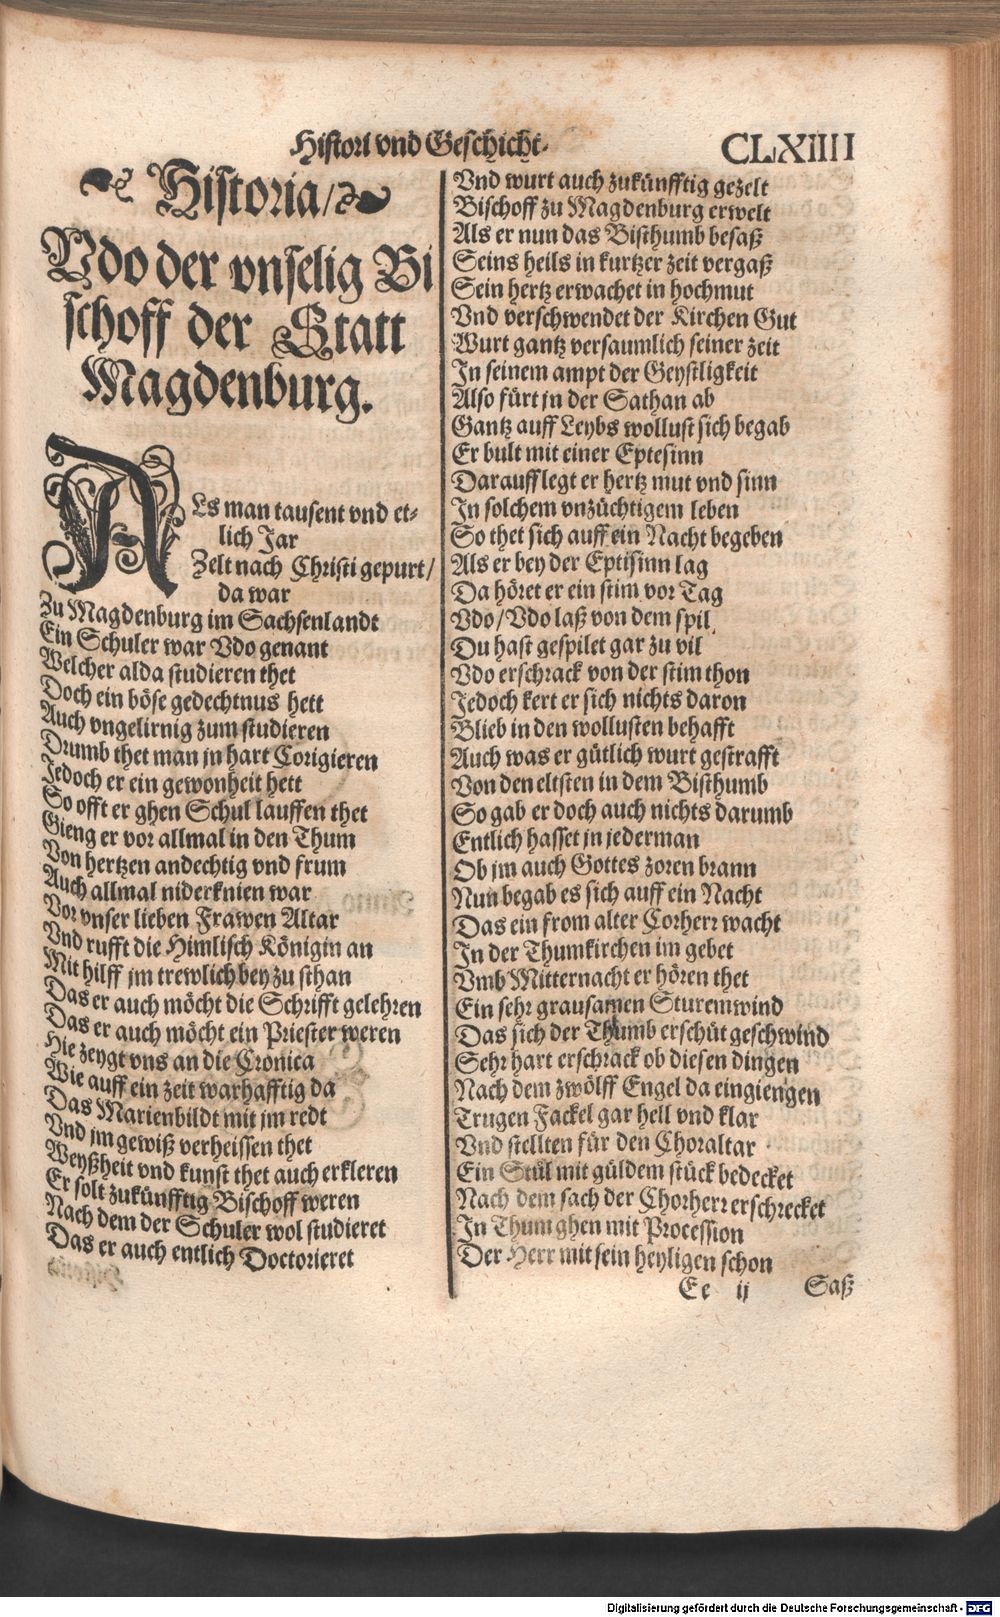 Histori vnd Geschicht.
CLXIIII
Historia/
Vdo der vnselig Bi
schoff der Statt
Magdenburg.
ALs man tausent vnd et-
lich Jar
Zelt nach Christi gepurt/
da war
Zu Magdenburg im Sachsenlandt
Ein Schuler war Vdo genant
Welcher alda studieren thet
Doch ein böse gedechtnus hett
Auch vngelirnig zum studieren
Drumb thet man jn hart Corigieren
Jedoch er ein gewonheit hett
So offt er ghen Schul lauffen thet
Gieng er vor allmal in den Thum
Von hertzen andechtig vnd frum
Auch allmal niderknien war
Vor vnser lieben Frawen Altar
Vnd rufft die Himlisch Königin an
Mit hilff jm trewlich bey zu sthan
Das er auch möcht die Schrifft gelehren
Das er auch möcht ein Priester weren
Hie zeygt vns an die Cronica
Wie auff ein zeit warhafftig da
Das Marienbildt mit jm redt
Vnd jm gewiß verheissen thet
Weyßheit vnd kunst thet auch erkleren
Er solt zukünfftig Bischoff weren
Nach dem der Schuler wol studieret
Das er auch entlich Doctorieret
Vnd wurt auch zukünfftig gezelt
Bischoff zu Magdenburg erwelt
Als er nun das Bisthumb besaß
Seins heils in kurtzer zeit vergaß
Sein hertz erwachet in hochmut
Vnd verschwendet der Kirchen Gut
Wurt gantz versaumlich seiner zeit
In seinem ampt der Geystligkeit
Also fürt jn der Sathan ab
Gantz auff Leybs wollust sich begab
Er bult mit einer Eptesinn
Darauff legt er hertz mut vnd sinn
In solchem vnzüchtigem leben
So thet sich auff ein Nacht begeben
Als er bey der Eptisinn lag
Da höret er ein stim vor Tag
Vdo/Vdo laß von dem spil
Du hast gespilet gar zu vil
Vdo erschrack von der stim thon
Jedoch kert er sich nichts daron
Blieb in den wollusten behafft
Auch was er gütlich wurt gestrafft
Von den eltsten in dem Bisthumb
So gab er doch auch nichts darumb
Entlich hasset jn jederman
Ob jm auch Gottes zoren brann
Nun begab es sich auff ein Nacht
Das ein from alter Corherr wacht
In der Thumkirchen im gebet
Vmb Mitternacht er hören thet
Ein sehr grausamen Sturemwind
Das sich der Thumb erschüt geschwind
Sehr hart erschrack ob diesen dingen
Nach dem zwölff Engel da eingiengen
Trugen Fackel gar hell vnd klar
Vnd stellten für den Choraltar
Ein Stül mit güldem stück bedecket
Nach dem sach der Chorherr erschrecket
In Thum ghen mit Procession
Der Herr mit sein heyligen schon
Ee ij
Saß
Digitalisierung gefördert durch die Deutsche Forschungsgemeinschaft - DFG